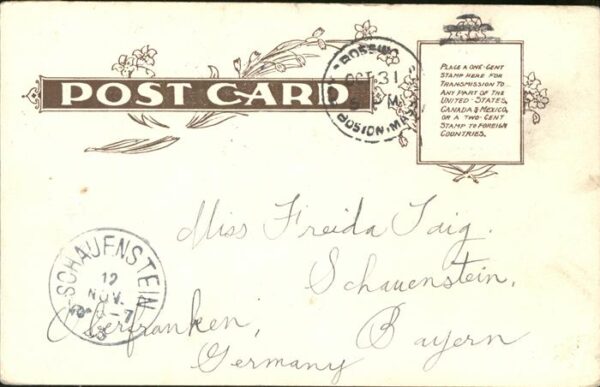 POST CARD
BOSTON, MASS
OCT 31
PLACE A ONE-CENT
STAMP HERE FOR
TRANSMISSION TO
ANY PART OF THE
UNITED STATES,
CANADA & MEXICO,
OR A TWO-CENT
STAMP TO FOREIGN
COUNTRIES.
Miss Freida Taig.
Schauenstein,
Oberfranken, Bayern
Germany
SCHAUENSTEIN
12
NOV.